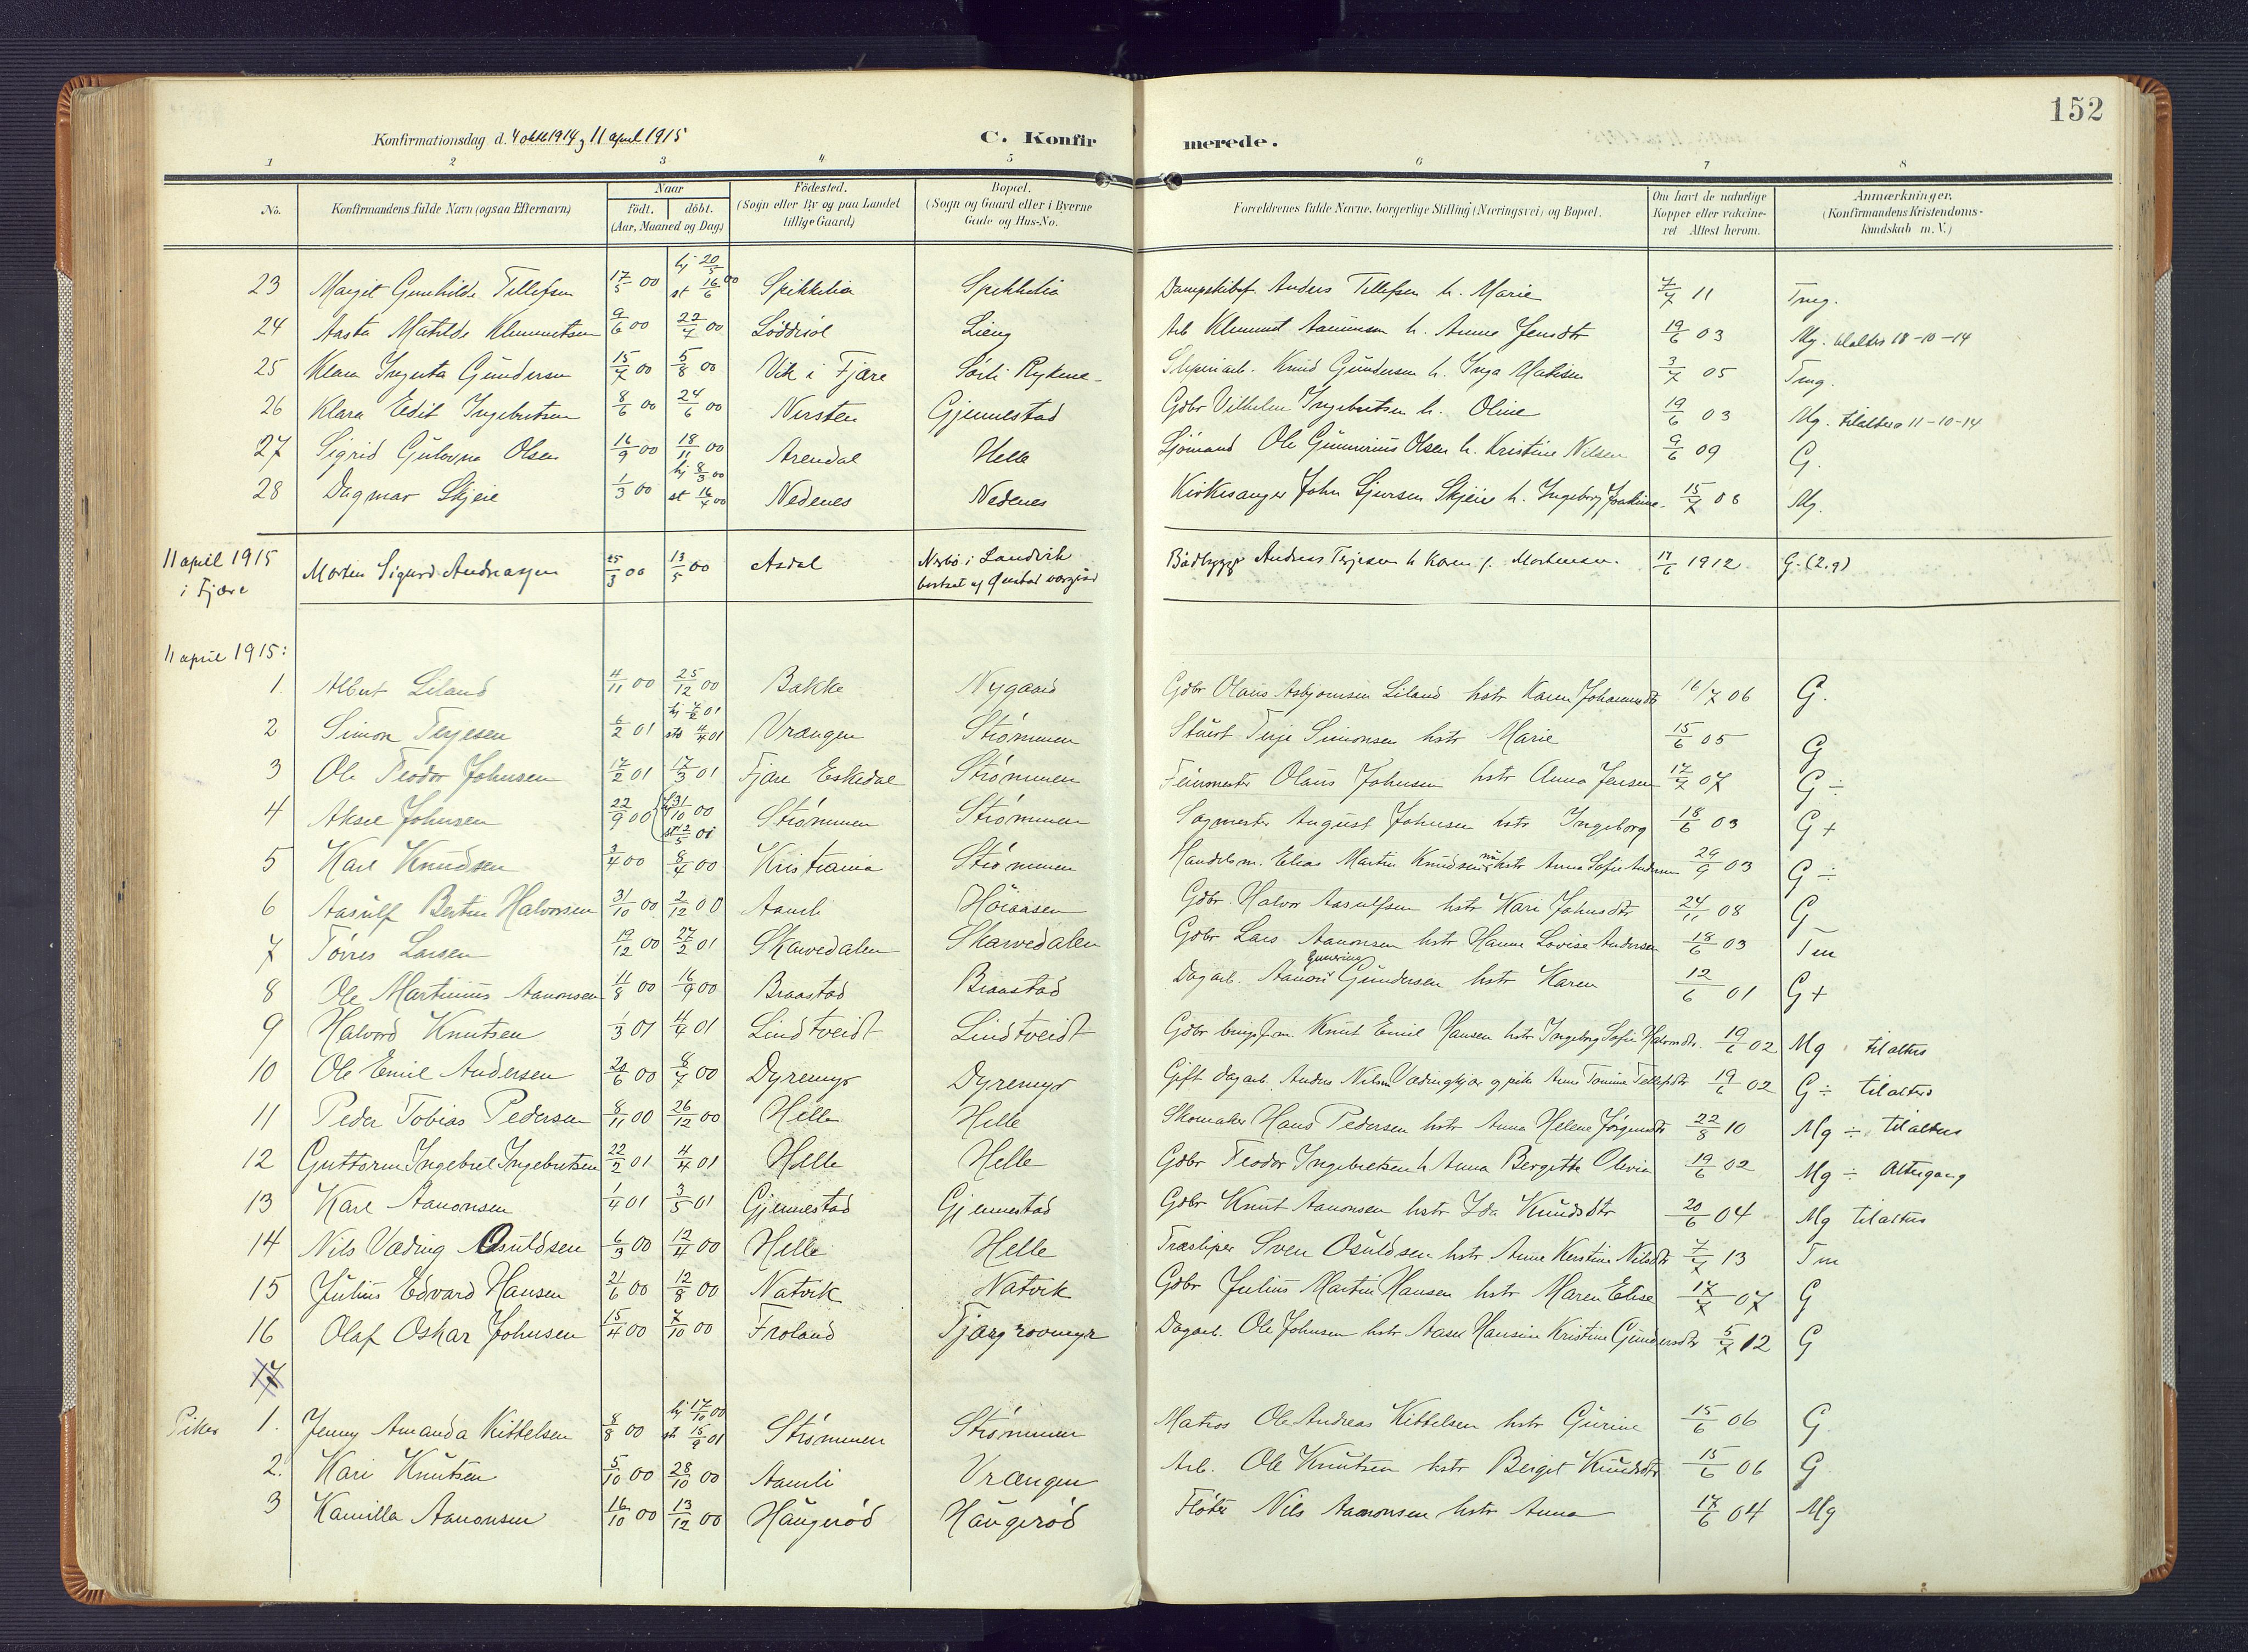 152
Konfirmationsdag d. 4 oktb 1914 og 11 april 1915 C. Konfirmerede.
1 2 3 4 5 6 7 8
No. Konfirmandens fulde Navn (ogsaa Efternavn) Naar födt. döbt. (Aar, Maaned og Dag) Födested. (Sogn eller By og paa Landet tillige Gaard) Bopæl. (Sogn og Gaard eller i Byerne Gade og Hus-No. Forældrenes fulde Navne, borgerlige Stilling (Næringsvei) og Bopæl. Om havt de naturlige Kopper eller vakcineret Attest herom. Anmærkninger. (Konfirmandens Kristendomskundskab m. V.)
23 Margit Gunhilde Tellefsen 17/5 00 hj 20/5 st 16/6 00 Spikkelia Spikkelia Anders Tellefsen h. Marie 7/7 11 Tmg.
24 Aasta Matilde Klemmetsen 9/6 00 22/7 00 Löddesöl Lieng Arb Klemmet Aanonsen h. Anne Jensdtr 19/6 03 Mg. tilalters 18-10-14
25 Klara Ingerta Gundersen 15/7 00 5/8 00 Vik i Fjære Rykene Knud Gundersen h. Inga 3/7 05 Tmg.
26 Klara Edit Ingebretsen 8/6 00 24/6 00 Nersten Gjennestad Gdbr Vilhelm Ingebretsen h. Oline 19/6 03 Mg. tilalters 11-10-14
27 Sigrid Olsen 16/9 00 18/11 00 Arendal Helle Sjömand Ole Gunnerius Olsen h. Kristine Nilsen 9/6 09 G.
28 Dagmar Skjeie 1/3 00 hj 8/3 00 st 16/4 00 Nedenes Nedenes Kirkesanger John Sjursen Skjeie h. Ingeborg Joakime 15/7 08 Mg.
11 april 1915 i Fjære Morten Sigurd Andreassen 25/3 00 13/5 00 Asdal i Landvik bortsat af Öiestad Baadbygger Andreas Terjesen h Karen f. Mortensen. 17/6 1912 G. (2,9)
11 april 1915:
1. Albert Liland 4/11 00 25/12 00 Bakke Nygaard Gdbr Olaus Asbjornsen Liland hstr Karen Johannesdtr 16/7 06 G.
2 Simon Terjesen 6/2 01 hj 7/2 01 sts 4/4 01 Vrangen Strömmen Stuert Terje Simonsen hstr Marie 15/6 05 G
3 Ole Teodor Johnsen 17/2 01 17/3 01 Fjære Eskedal Strömmen Olaus Johnsen hstr Anna Jensen 17/7 07 G ÷
4 Aksel Johnsen 22/9 00 hj 31/10 00 st 12/5 01 Strömmen Strömmen Sagmester August Johnsen hstr Ingeborg 18/6 03 G +
5 Karl Knudsen 3/4 00 8/4 00 Kristiania Strömmen Handelsm. Elias Martin Knudsen hstr Anna Sofie Andersen 29/9 03 G ÷
6 Aasulf Bertin Halvorsen 31/10 00 2/12 00 Aamli Höiaasen Gdbr. Halvor Aasulfsen hstr Kari Johnsdtr 24/11 08 G
7 Törres Larsen 19/12 00 27/2 01 Skarvedalen Skarvedalen Gdbr Lars Aanonsen hstr Hanne Lovise Andersen 18/6 03 Tm
8 Ole Martinius Aanonsen 11/8 00 16/9 00 Braastad Braastad Dagarb. Aanon Gunerius Gundersen hstr Karen 12/6 01 G +
9 Halvord Knutsen 1/3 01 4/4 01 Lindtveidt Lindtveidt Gdbr Knut Emil Hansen hstr Ingeborg Sofie Halvorsdtr. 19/6 02 Mg tilalters
10 Ole Emil Andersen 20/6 00 8/7 00 Dyremyr Dyremyr Gift dagarb. Anders Nilsen og pike Anne Tomine Tellefsdtr 19/6 02 G ÷ tilalters
11 Peder Tobias Pedersen 8/11 00 26/12 00 Helle Helle Skomaker Hans Pedersen hstr Anna Helene Jörgensdtr 22/8 10 Mg ÷ tilalters
12 Guttorm Ingebret Ingebretsen 22/2 01 4/4 01 Helle Helle Gdbr Teodor Ingebretsen h Anna Bergitte Olivia 19/6 02 Mg ÷ Altergang
13 Karl Aanonsen 1/4 01 3/5 01 Gjennestad Gjennestad Gdbr Knut Aanonsen hstr Ida Knudsdtr 20/6 04 Mg tilalters
14 Nils Væding Osuldsen 6/3 00 12/4 00 Helle Helle Træsliper Sven Osuldsen hstr. Anne Kerstine Nilsdtr 7/7 13 Tm
15 Julius Edvard Hansen 21/6 00 12/8 00 Natvik Natvik Gdbr Julius Martin Hansen hstr Maren Elise 17/7 07 G
16 Olaf Oskar Johnsen 15/4 00 7/10 00 Froland Dagarb. Ole Johnsen hstr Aasel Hansine Kristine Gundersdtr 5/7 12 G
17
Piker 1. Jenny Amanda Kittelsen 8/8 00 hj 17/10 00 st 15/9 01 Strömmen Strömmen Matros Ole Andreas Kittelsen hstr Gurine 15/6 06 G
2. Kari Knutsen 5/10 00 28/10 00 Aamli Vrangen Arb. Ole Knutsen hstr Berget Knudsdtr 15/6 06 G
3 Kamilla Aanonsen 16/10 00 13/12 00 Haugeröd Haugeröd Flöter Nils Aanonsen hstr Anna 17/6 04 Mg